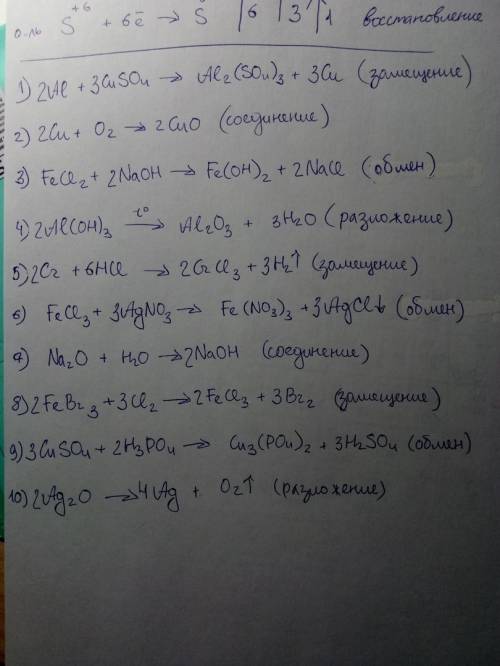 о-ль S⁺⁶ + 6ē → S⁰ | 6 | 3 | 1 восстановление
1) 2Al + 3CuSO₄ → Al₂(SO₄)₃ + 3Cu (замещение)
2) 2Cu + O₂ → 2CuO (соединение)
3) FeCl₂ + 2NaOH → Fe(OH)₂ + 2NaCl (обмен)
4) 2Al(OH)₃ t° → Al₂O₃ + 3H₂O (разложение)
5) 2Cr + 6HCl → 2CrCl₃ + 3H₂↑ (замещение)
6) FeCl₃ + 3AgNO₃ → Fe(NO₃)₃ + 3AgCl↓ (обмен)
7) Na₂O + H₂O → 2NaOH (соединение)
8) 2FeBr₃ + 3Cl₂ → 2FeCl₃ + 3Br₂ (замещение)
9) 3CuSO₄ + 2H₃PO₄ → Cu₃(PO₄)₂ + 3H₂SO₄ (обмен)
10) 2Ag₂O → 4Ag + O₂↑ (разложение)